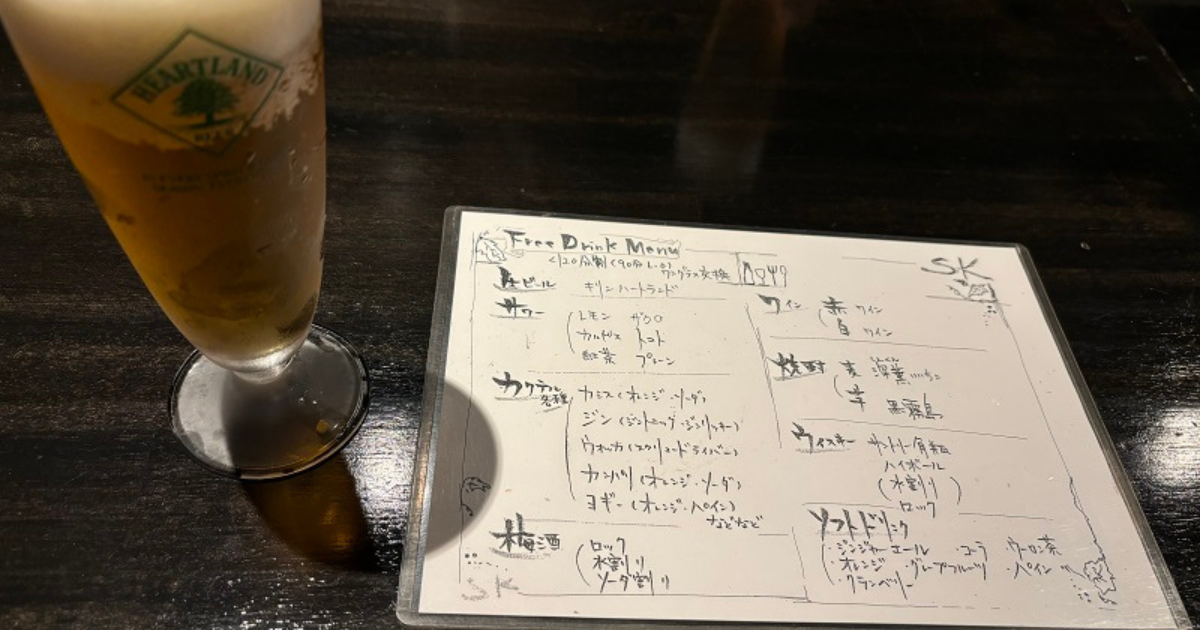 HEARTLAND
BEER
Free Drink Menu
<120分制 (90分L.O)
ワングラス交換
SK
生ビール キリンハートランド
サワー
レモン
カルピス トマト
プレーン
カクテル各種
カシス (オレンジ・ソーダ)
ジン (ジントニック・ジンリッキー)
ウォッカ (スクリュードライバー)
カンパリ (オレンジ・ソーダ)
ヨギー (オレンジ・パイン)
などなど
梅酒
ロック
水割り
ソーダ割り
SK
ワイン
赤ワイン
白ワイン
焼酎
麦
いいちこ
芋 黒霧島
ウィスキー
サントリー角瓶
ハイボール
水割り
ロック
ソフトドリンク
・ジンジャーエール ・コーラ ・ウーロン茶
・オレンジ ・グレープフルーツ ・パイン
・クランベリー